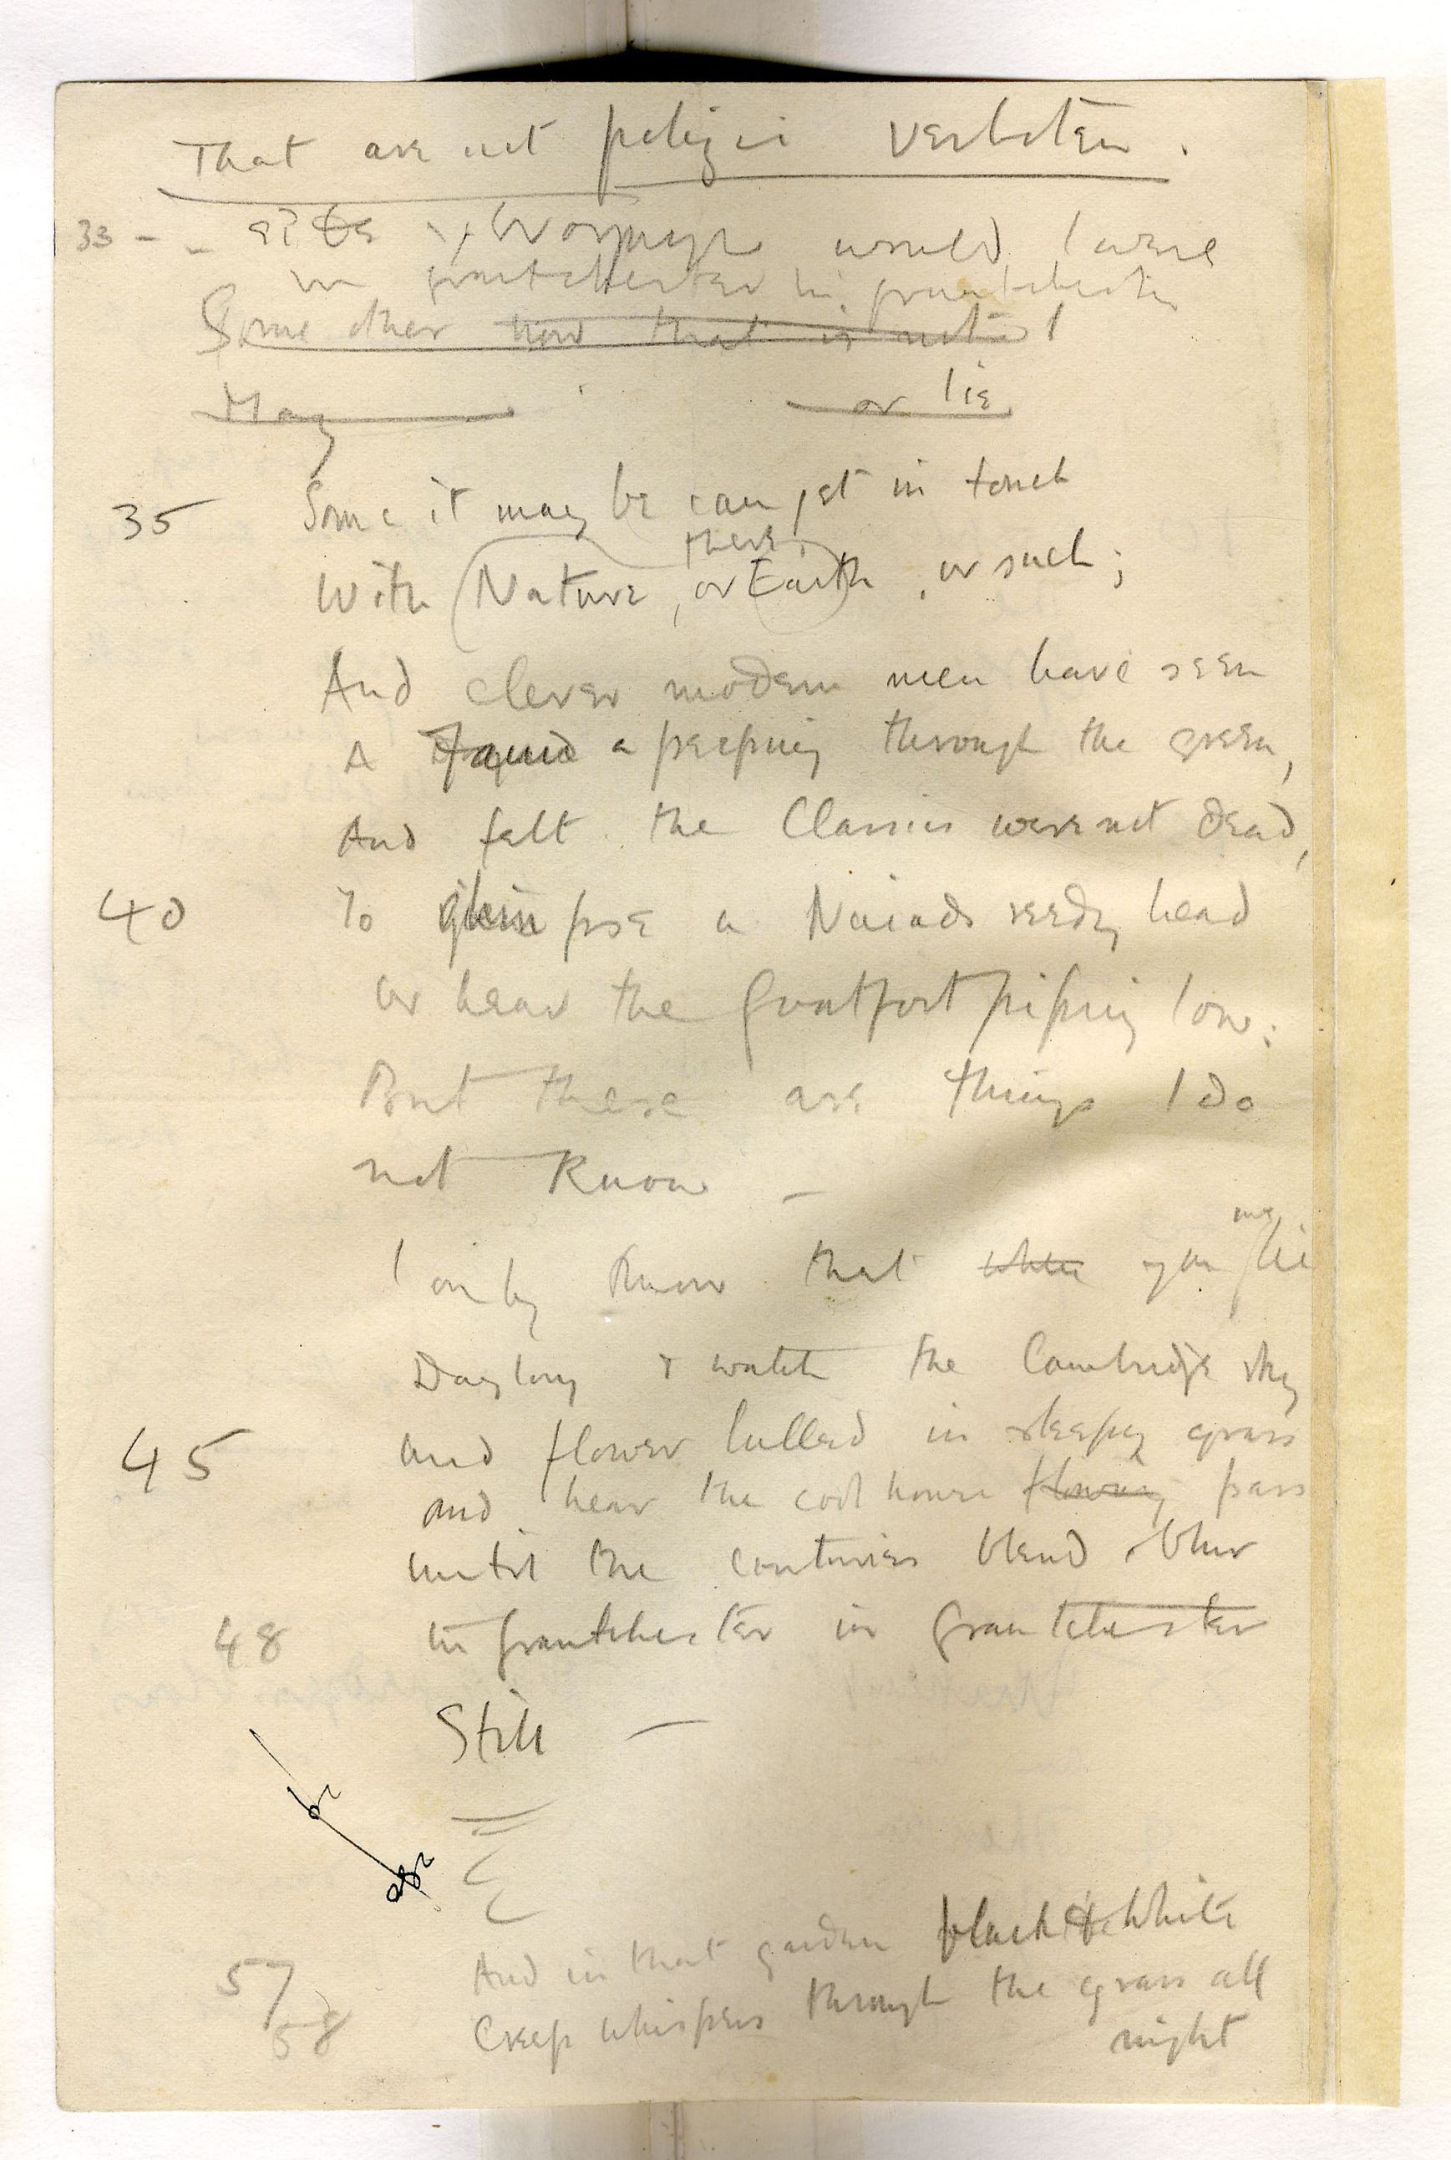 That are not polizei verboten.
33 - - εἴθε γενοίμην would I were
in grantchester in grantchester
Some other now that is not I
May or lie
35 Some it may be can get in touch
there
With Nature, or Earth, or such;
And clever modern men have seen
A Faun a peeping through the green,
And felt the Classics were not dead,
40 To glimpse a Naiads reedy head
or hear the Goatfoot piping low:
But these are things I do
not know –
me
I only know that when you lie
Daylong & watch the Cambridge sky
and flower lulled in sleepy grass
45 and hear the cool hours flowing pass
until the centuries blend & blur
48 in grantchester in Grantchester
Still –
57 And in that garden black & white
58 Creep whispers through the grass all
night